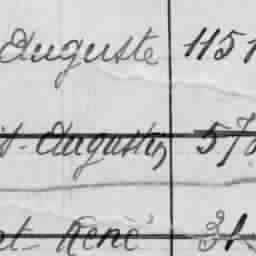 Auguste 1151
t-Augustin 57
et-René 31